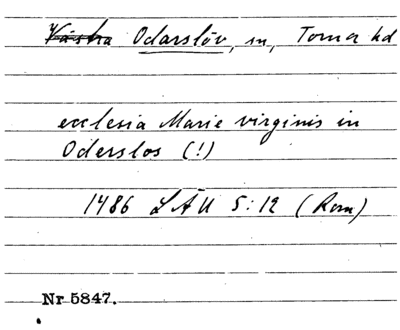 Västra Odarslöv, sn, Torna hd
ecclesia Marie virginis in
Oderslos (!)
1486 LÄU 5:12 (Rom)
Nr 5847.